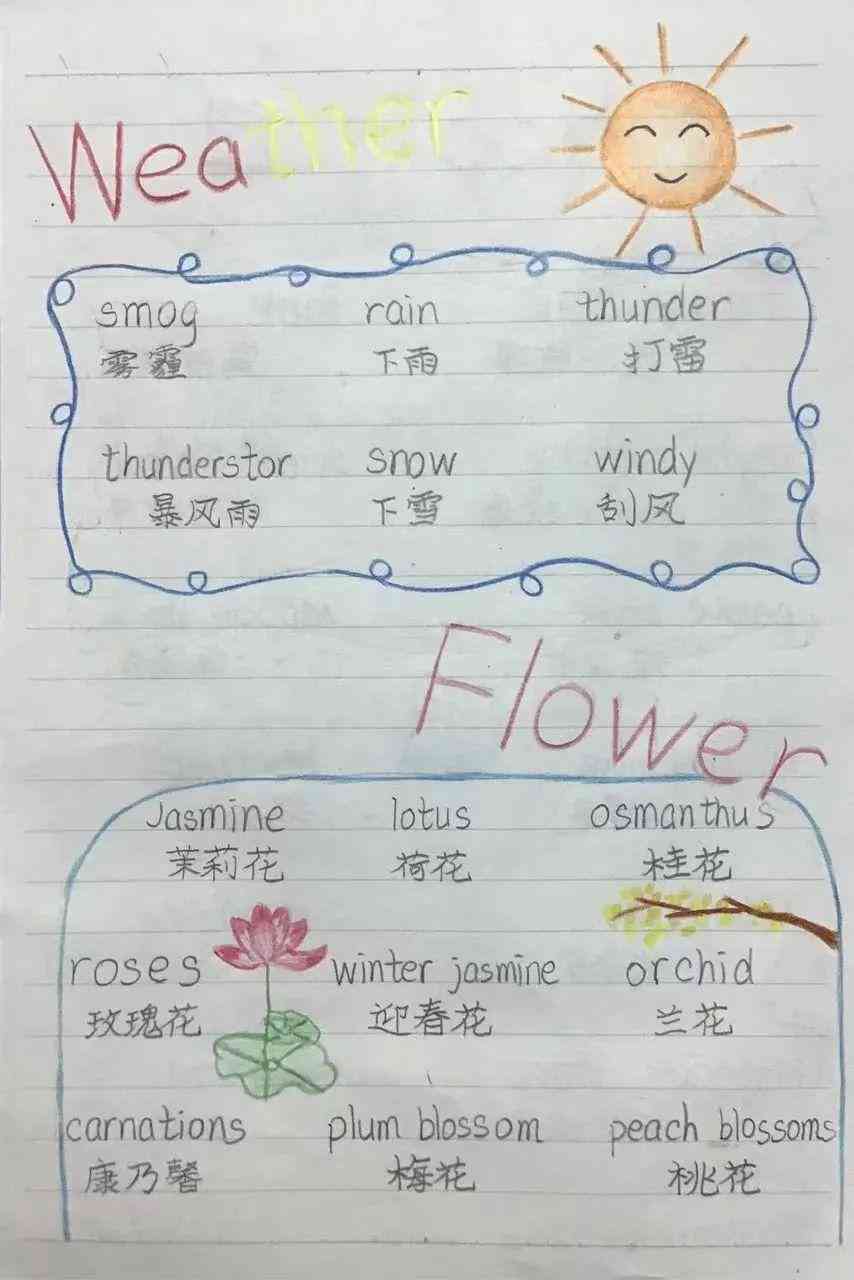 Weather
smog rain thunder
雾霾 下雨 打雷
thunderstor snow windy
暴风雨 下雪 刮风
Flower
Jasmine lotus osmanthus
茉莉花 荷花 桂花
roses winter jasmine orchid
玫瑰花 迎春花 兰花
carnations plum blossom peach blossoms
康乃馨 梅花 桃花